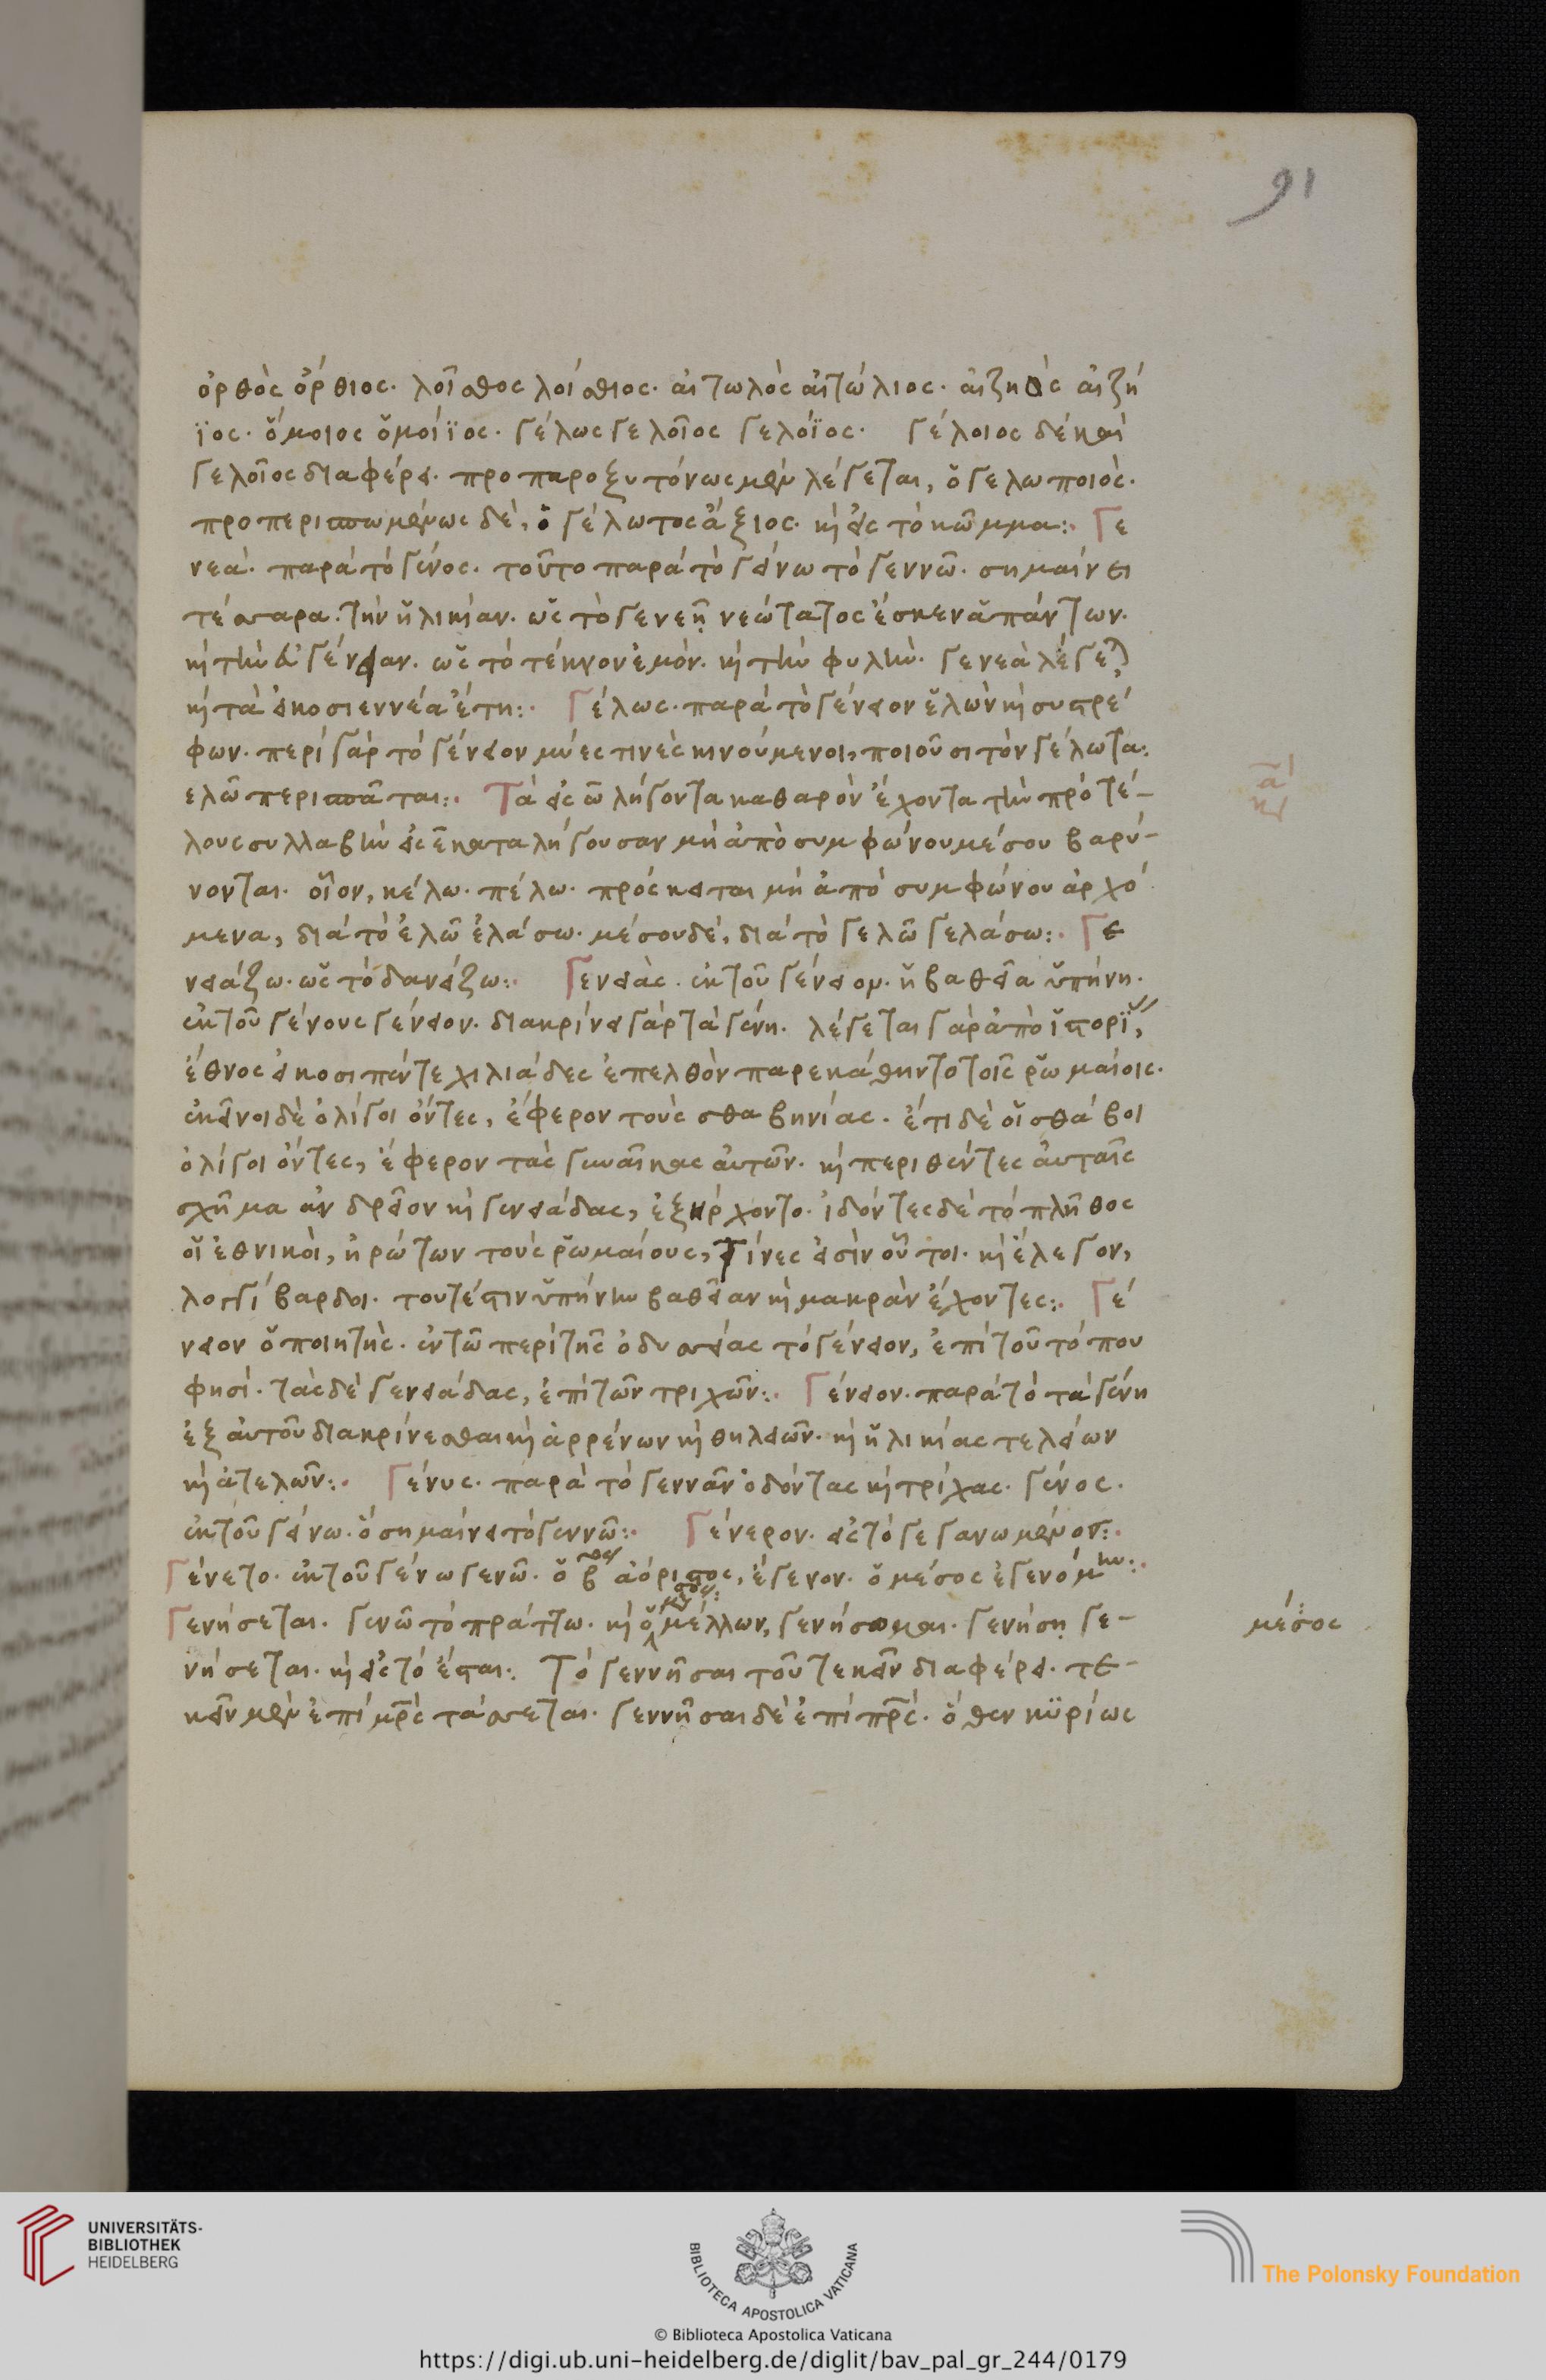 91
ὀρθὸς ὄρθιος. λοῖσθος λοίσθιος. αἰτωλὸς αἰτώλιος. αἰζηὸς αἰζή
ϊος. ὅμοιος ὁμοίϊος. γέλως γελοῖος γελόϊος. γέλοιος δὲ καὶ
γελοῖος διαφέρει. προπαροξυτόνως μὲν λέγεται, ὁ γελωποιός.
προπερισπωμένως δὲ, ὁ γέλωτος ἄξιος. κὶ εἰς τὸ κῶμμα:. Γε
νεά. παρὰ τὸ γένος. τοῦτο παρὰ τὸ γείνω τὸ γεννῶ. σημαίνει
τέσσαρα. τὴν ἡλικίαν. ὡς τὸ γενεῇ νεώτατος ἔσκεν ἁπάντων.
κὶ τὴν εὐγένειαν. ὡς τὸ τέκνον ἐμόν. κὶ τὴν φυλήν. γενεὰ λέγε
κὶ τὰ εἰκοσιεννέα ἔτη:. Γέλως. παρὰ τὸ γένειον ἑλὼν κὶ συστρέ
φων. περὶ γὰρ τὸ γένειον μύες τινὲς κινούμενοι, ποιοῦσι τὸν γέλωτα:
ελῶ περισπᾶται:. Τὰ εἰς ῶ λήγοντα καθαρὸν ἔχοντα τὴν πρὸ τέ-
λους συλλαβὴν εἰς ε καταλήγουσαν μὴ ἀπὸ συμφώνου μέσου βαρύ-
νονται. οἷον, κέλω. πέλω. πρόσκειται μὴ ἀπὸ συμφώνου ἀρχό
μενα, διὰ τὸ ἐλῶ ἐλάσω. μέσου δὲ, διὰ τὸ γελῶ γελάσω:. Γε
νειάζω. ὡς τὸ δανείζω:. Γενειάς. ἐκ τοῦ γένειον. ἡ βαθεῖα ὑπήνη.
ἐκ τοῦ γένους γένειον. διακρίνει γὰρ τὰ γένη. λέγεται γὰρ ἀπὸ ἱστορί,
ἔθνος εἰκοσιπέντε χιλιάδες ἐπελθὸν παρεκάθηντο τοῖς ῥωμαίοις.
ἐκεῖνοι δὲ ὀλίγοι ὄντες, ἔφερον τοὺς σθαβηνίας. ἔτι δὲ οἱ σθάβοι
ὀλίγοι ὄντες, ἔφερον τὰς γυναῖκας αὐτῶν. κὶ περιθέντες αὐταῖς
σχῆμα ἀνδρεῖον κὶ γενειάδας, ἐξήρχοντο. ἰδόντες δὲ τὸ πλῆθος
οἱ ἐθνικοὶ, ἠρώτων τοὺς ῥωμαίους, τίνες εἰσὶν οὗτοι. κὶ ἔλεγον,
λογγίβαρδοι. τουτέστιν ὑπήνην βαθεῖαν κὶ μακρὰν ἔχοντες:. Γέ
νειον ὁ ποιητής. ἐν τῶ περὶ τῆς ὀδυσσείας τὸ γένειον, ἐπὶ τοῦ τόπου
φησί. τὰς δὲ γενειάδας, ἐπὶ τῶν τριχῶν:. Γένειον. παρὰ τὸ τὰ γένη
ἐξ αὐτοῦ διακρίνεσθαι κὶ ἀρρένων κὶ θηλειῶν. κὶ ἡλικίας τελείων
κὶ ἀτελῶν:. Γένυς. παρὰ τὸ γεννᾶν ὀδόντας κὶ τρίχας. γένος.
ἐκ τοῦ γείνω. ὃ σημαίνει τὸ γεννῶ:. Γένερον. εἰς τὸ γεγανωμένον:.
Γένετο. ἐκ τοῦ γένω γενῶ. ὁ β ἀόριστος, ἔγενον. ὁ μέσος ἐγενόμην:.
Γενήσεται. γενῶ τὸ πράττω. κὶ ὁ μέλλων, γενήσομαι. γενήση γε-
μέσος
νήσεται. κὶ εἰς τὸ ἔσται:. Τὸ γεννῆσαι τοῦ τεκεῖν διαφέρει. τε-
κεῖν μὲν ἐπὶ μρς τάσσεται. γεννῆσαι δὲ ἐπὶ πρς. ὅθεν κϋρίως
UNIVERSITÄTS-
BIBLIOTHEK
HEIDELBERG
BIBLIOTECA APOSTOLICA VATICANA
The Polonsky Foundation
© Biblioteca Apostolica Vaticana
https://digi.ub.uni-heidelberg.de/diglit/bav_pal_gr_244/0179